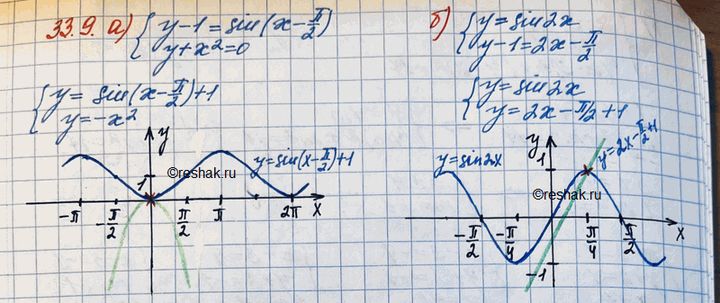 33.9. а) { y-1=sin(x-π/2)
y+x²=0
{ y=sin(x-π/2)+1
y=-x²
y
y=sin(x-π/2)+1
1
©reshak.ru
-π -π/2 π/2 π 2π x
б) { y=sin2x
y-1=2x-π/2
{ y=sin2x
y=2x-π/2+1
y
y=sin2x
1
y=2x-π/2+1
©reshak.ru
-π/2 -π/4 π/4 π/2 x
-1